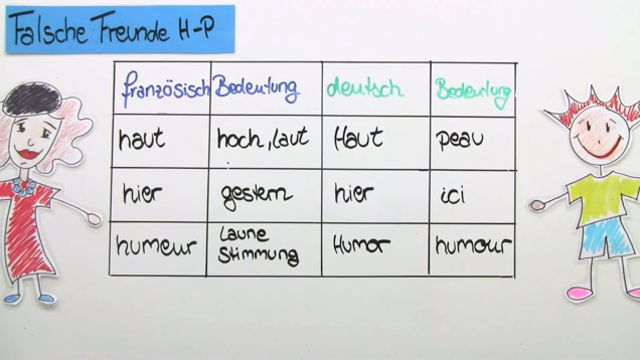 Falsche Freunde H-P
französisch Bedeutung deutsch Bedeutung
haut hoch, laut Haut peau
hier gestern hier ici
humeur Laune Stimmung Humor humour